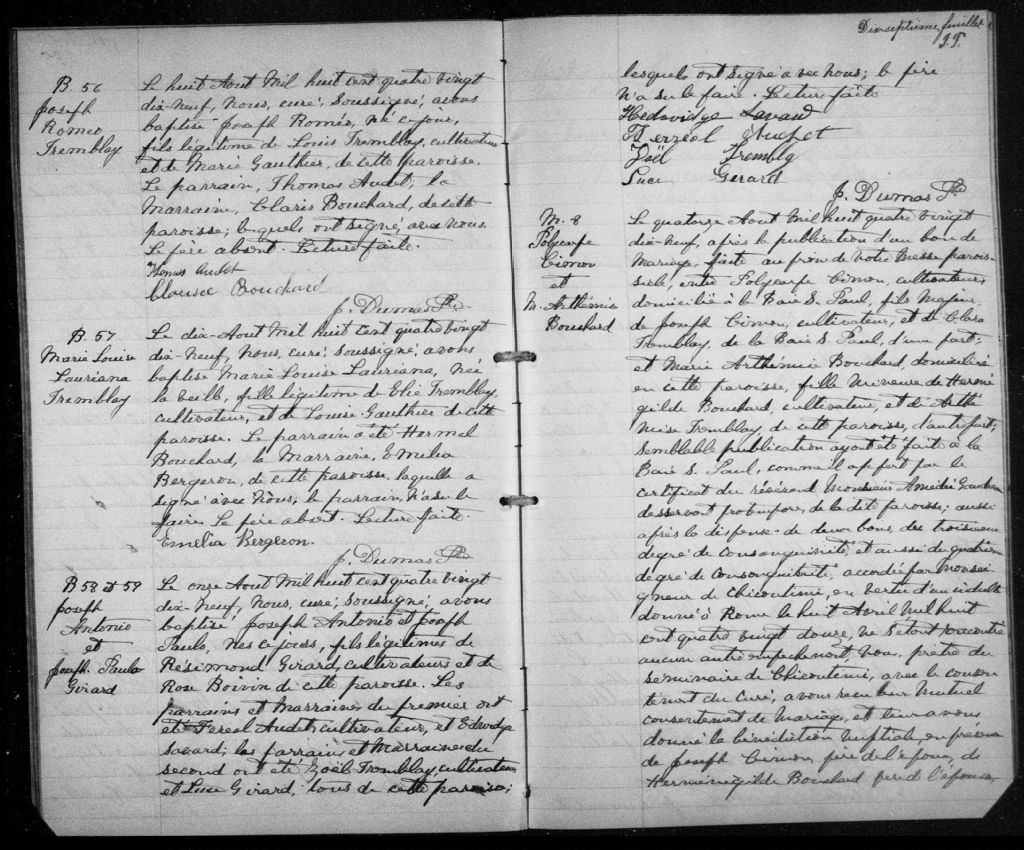 B. 56
Joseph
Roméo
Tremblay
Le huit Août Mil huit cent quatre vingt
dix-neuf, Nous, curé, soussigné, avons
baptisé Joseph Roméo, né ce jour,
fils légitime de Louis Tremblay, cultivateur
et de Marie Gauthier, de cette paroisse.
Le parrain, Thomas Audet; la
Marraine, Claris Bouchard, de cette
paroisse; lesquels ont signé avec nous.
Le père absent. Lecture faite.
Audet
Bouchard
J. Dumas Ptre
B. 57
Marie Louise
Lauréana
Tremblay
Le dix-Août Mil huit cent quatre vingt
dix-neuf, Nous, curé, soussigné, avons
baptisé Marie Louise Lauréana, Née
la veille, fille légitime de Elie Tremblay,
cultivateur, et de Louise Gauthier de cette
paroisse. Le parrain a été Hormel
Bouchard, la Marraine, Emélia
Bergeron, de cette paroisse, laquelle a
signé avec Nous, le parrain, n'a su le
faire. Le père absent. Lecture faite.
Emélia Bergeron.
J. Dumas Ptre
B 58 et 59
Joseph
Antonio
et
Joseph Paulo
Girard
Le onze Août Mil huit cent quatre vingt
dix-neuf, Nous, curé, soussigné, avons
baptisé Joseph Antonio et Joseph
Paulo, Nés ce jour, fils légitimes de
Résimond Girard, cultivateurs et de
Rose Boivin de cette paroisse. Les
parrains et Marraines du premier ont
été Fereol Audet, cultivateur, et Edwidge
Savard; les parrain et Marraine du
second ont été Zoël Tremblay, cultivateur
et Luce Girard, tous de cette paroisse;
Dixseptieme feuillet
J. T.
lesquels ont signé avec nous; le père
n'a su le faire. Lecture faite.
Hedwidge Savard
Audet
Zoël Trembla
Luce Gerard
J. Dumas Ptre
M. 8
Polycarpe
Cimon
et
M. Arthémise
Bouchard
Le quatorze Août Mil huit quatre vingt
dix-neuf, après la publication d'un ban de
Mariage, faite au prône de Notre Messe parois-
siale, entre Polycarpe Cimon, cultivateur
domicilié à la Baie S. Paul, fils Majeur,
de Joseph Cimon, cultivateur, et de Clara
Tremblay, de la Baie S. Paul, d'une part;
et Marie Arthémise Bouchard, domiciliée
en cette paroisse, fille Mineure de Hermé-
gilde Bouchard, cultivateur, et d'Arthé-
mise Tremblay, de cette paroisse, d'autre part;
Semblable publication ayant été faite à la
Baie S. Paul, comme il appert par le
certificat du révérend Monsieur Amédée
desservant pro tempore, de la dite paroisse; aussi
après la dispense de deux bans, du troisième
degré de Consanguinité, et aussi du quatrième
degré de Consanguinité, accordée par Monsei-
gneur de Chicoutimi, en vertu d'un indult
donné à Rome le huit Avril Mil huit
cent quatre vingt douze, ne s'étant rencontré
aucun autre empêchement, Nous, prêtre du
séminaire de Chicoutimi, avec le consen-
tement du Curé, avons reçu leur Mutuel
consentement de Mariage, et leur avons
donné la bénédiction Nuptiale en présence
de Joseph Cimon, père de l'époux, de
Herménégilde Bouchard père de l'épouse,